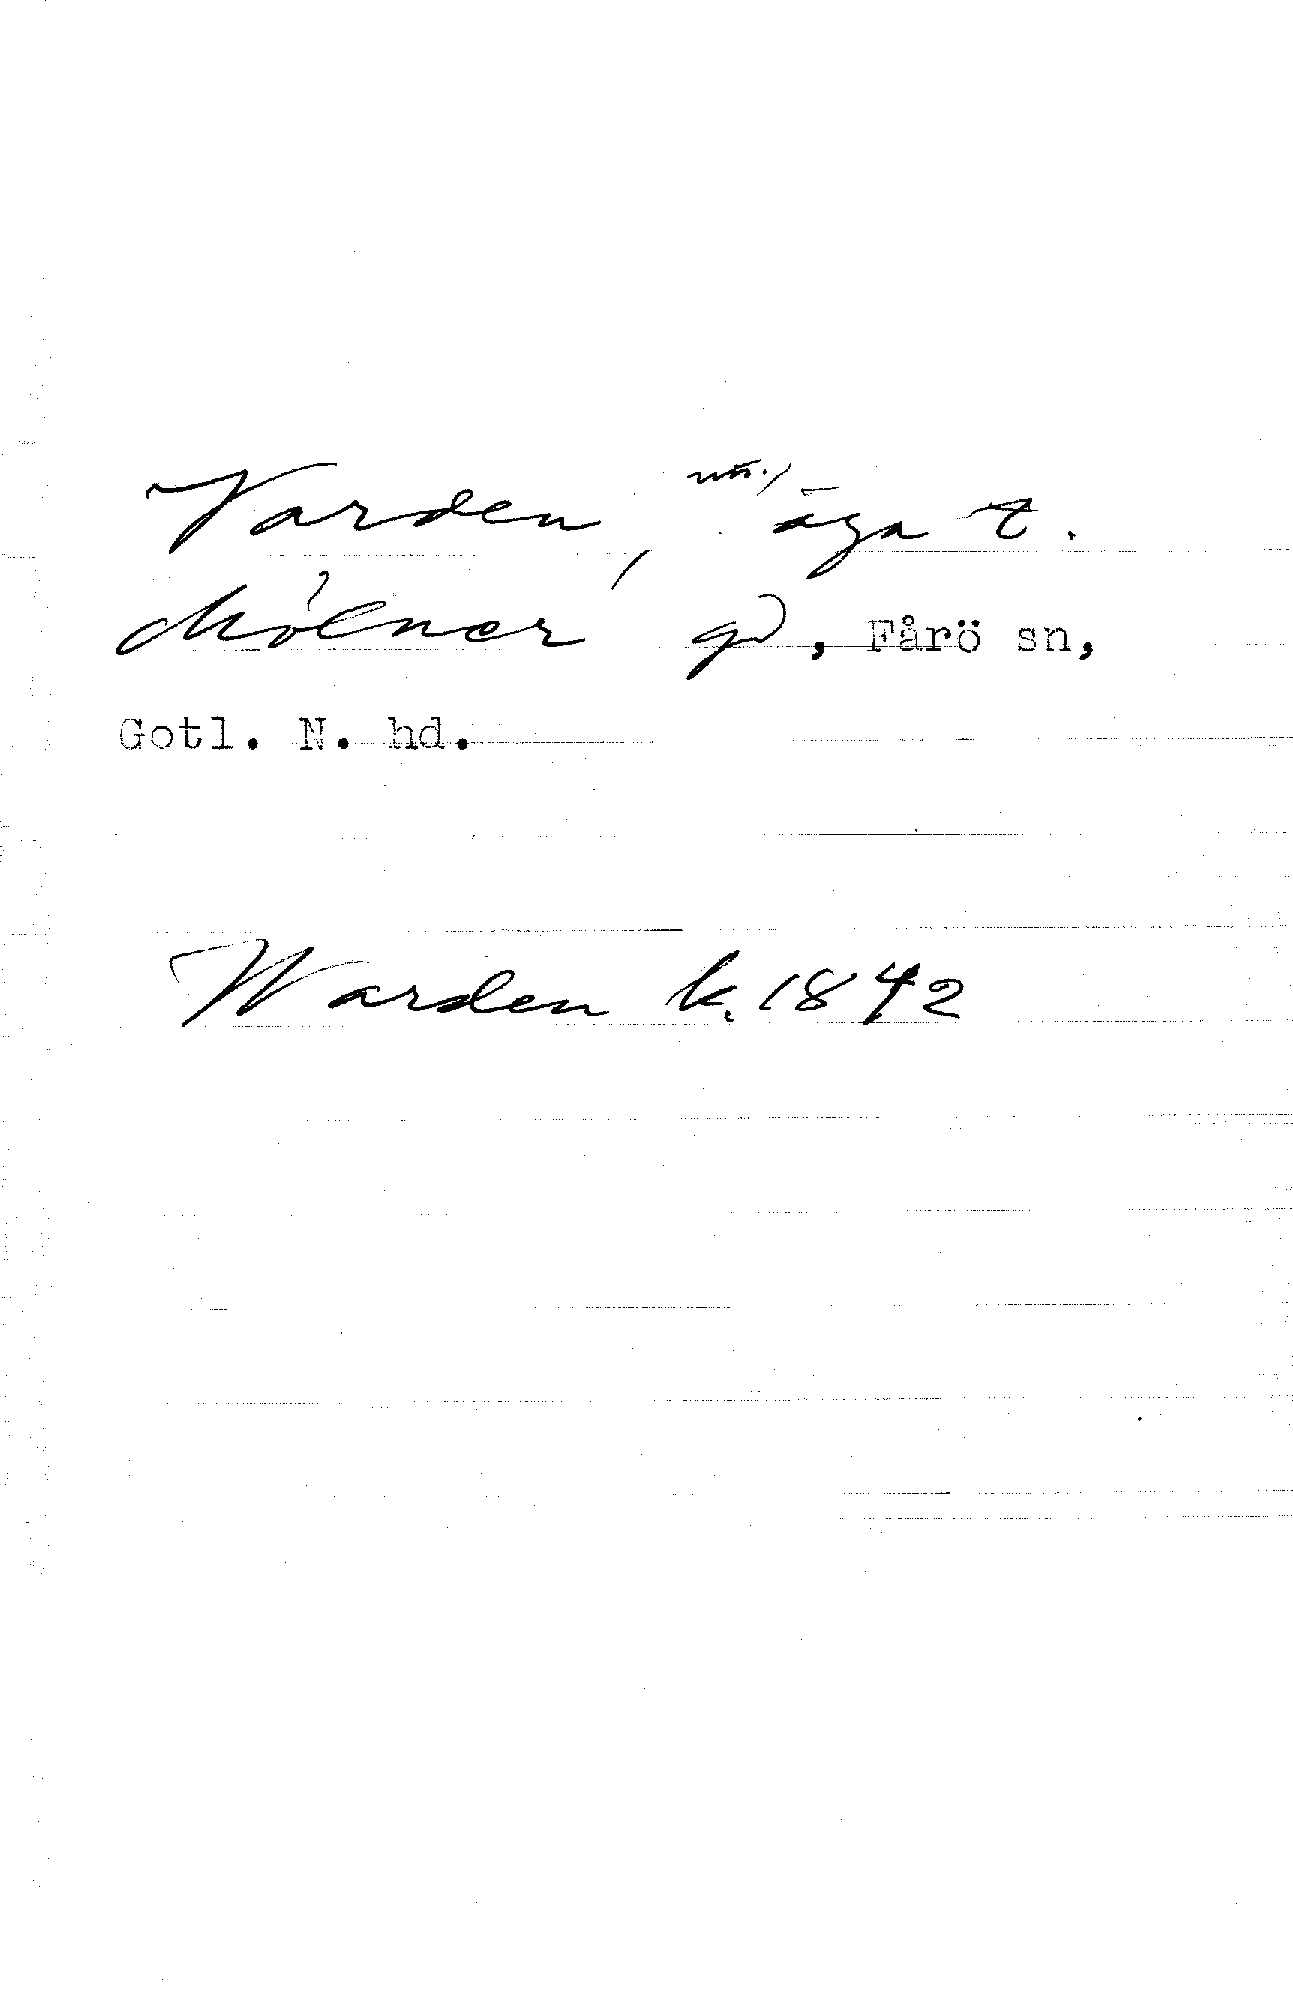 Varden, äga t.
Mölner gd, Fårö sn,
Gotl. N. hd.
Warden k. 1842